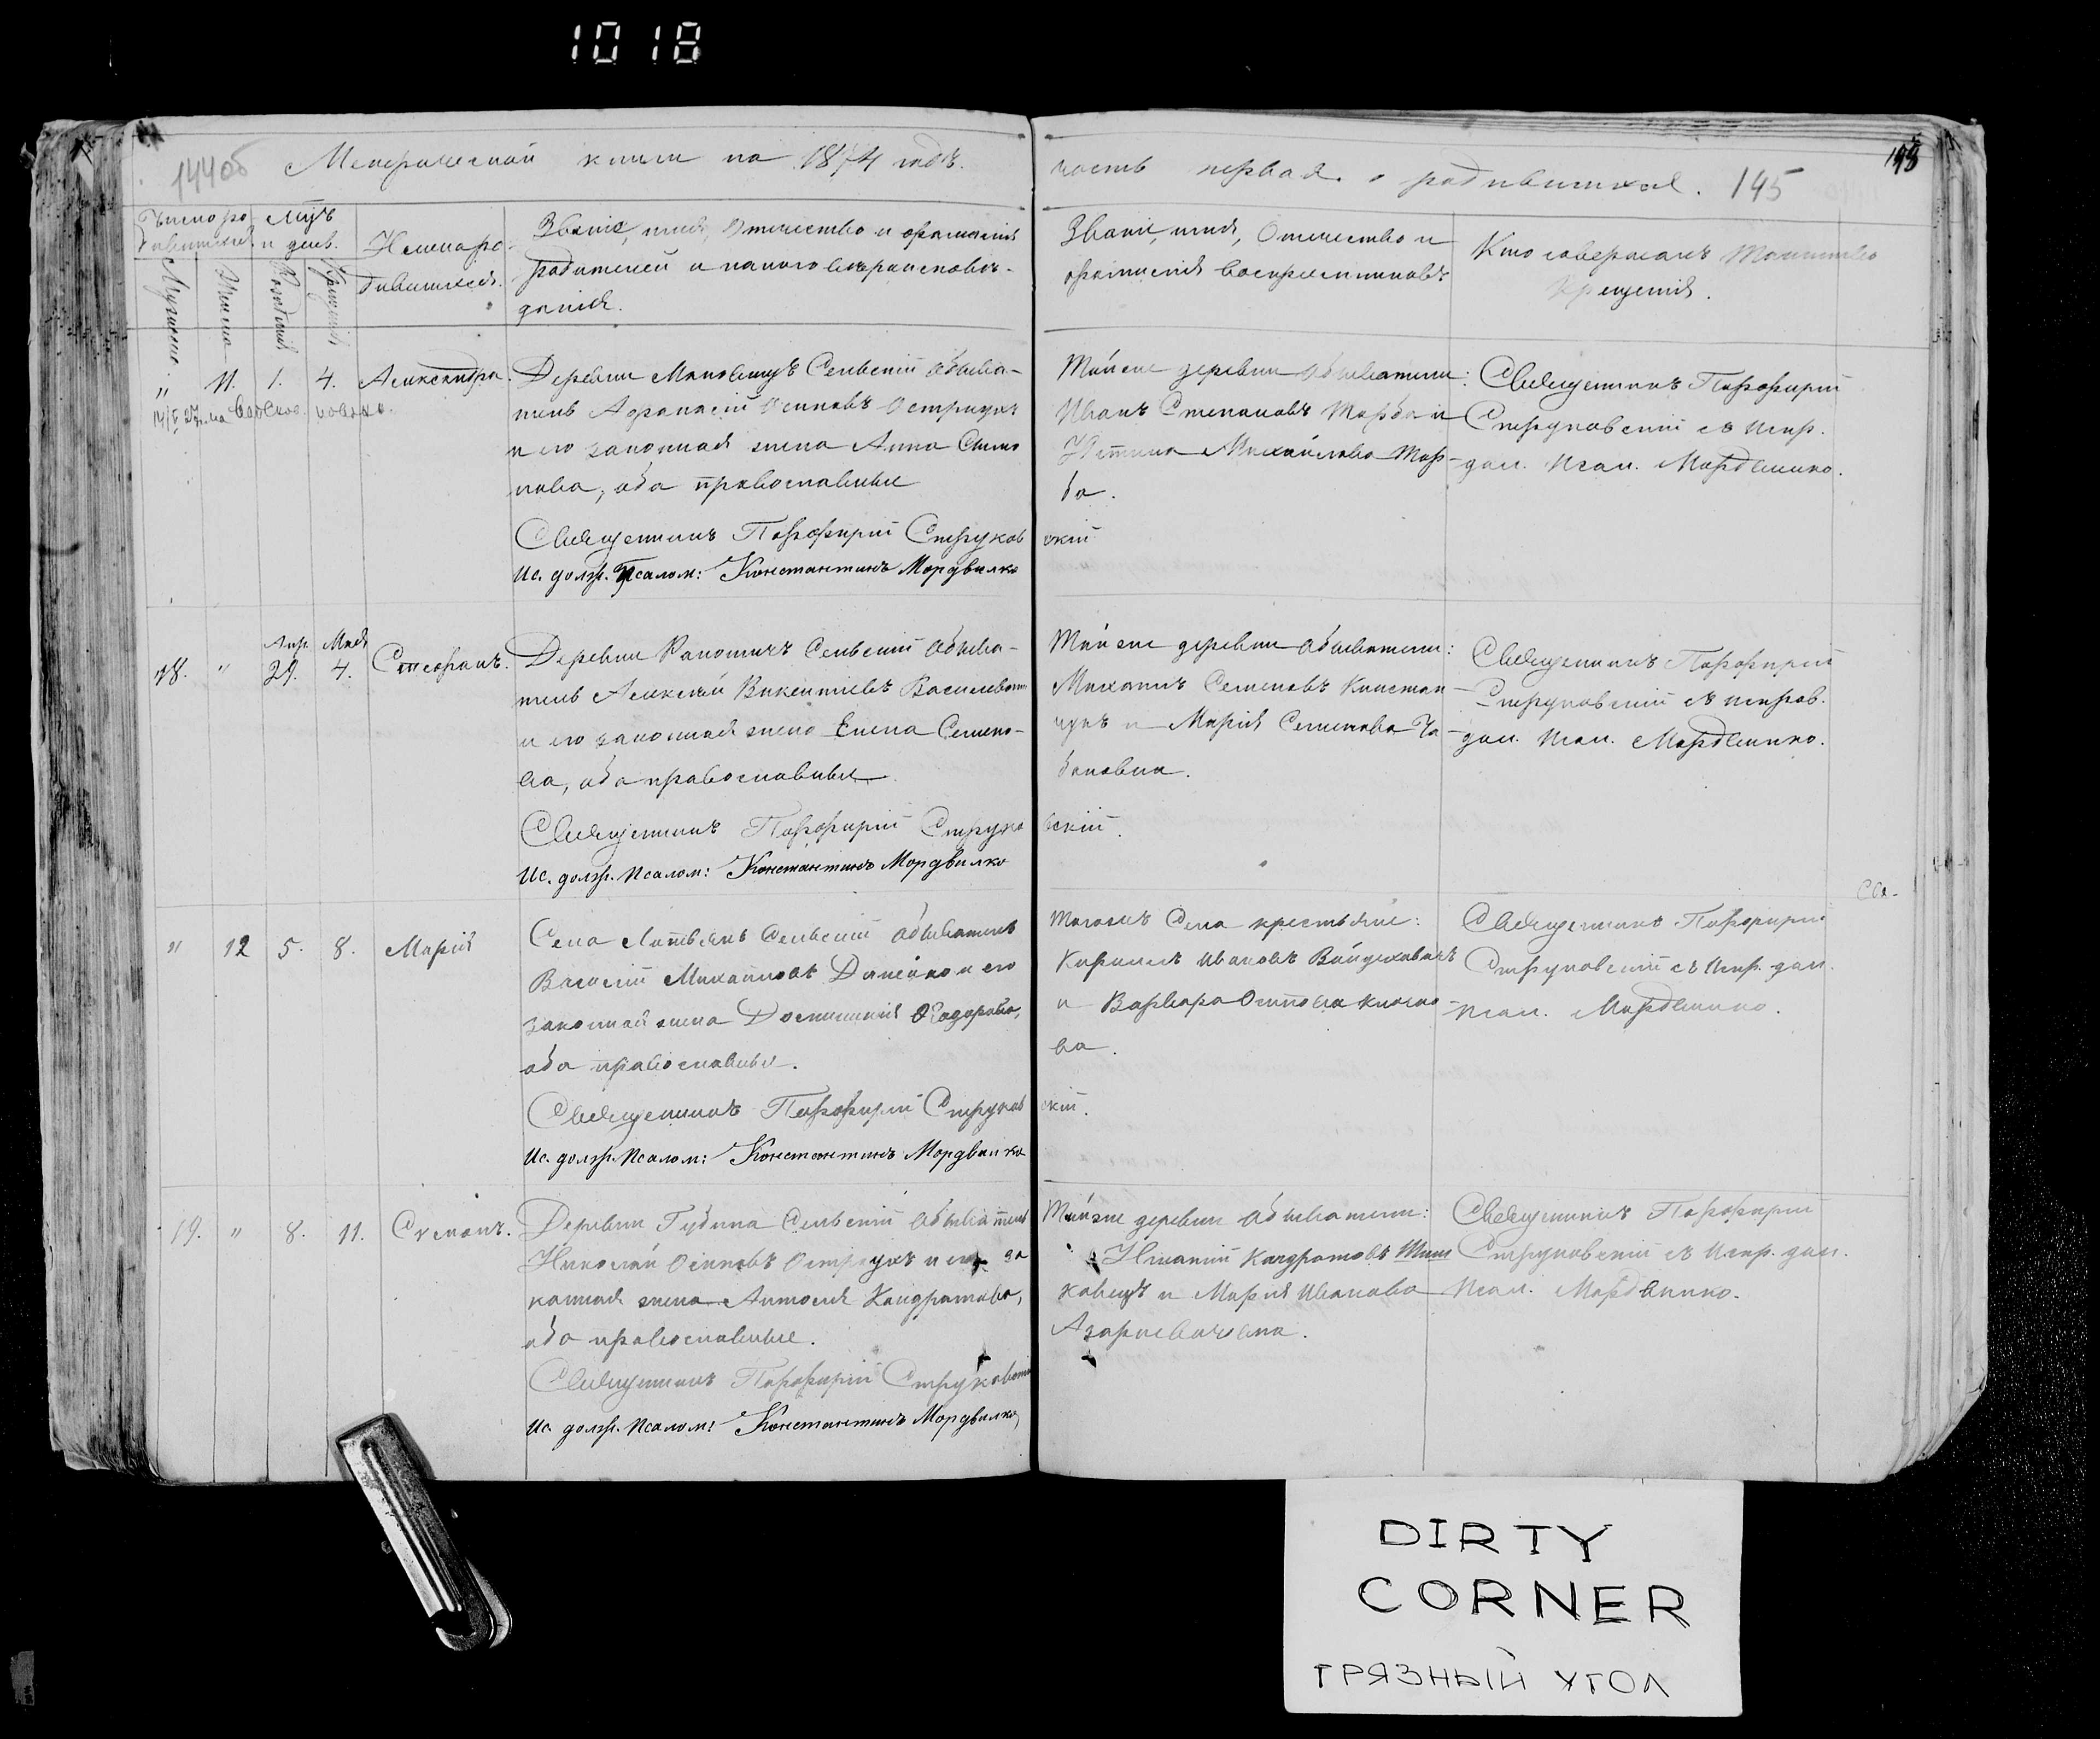 1018
144об Метрической книги на 1874 годъ.
часть первая о родившихся. 145
Число ро
дившихся
Мцъ
и день.
Мужеска
Женска
Рожденія
Крещенія
Имена ро-
дившихся.
Званіе, имя, отчество и фамилія
родителей и какого вѣроисповѣ-
данія.
Званіе, имя, Отчество и
фамилія воспріемниковъ
Кто совершалъ таинство
крещенія.
" 11. 1. 4. Александра.
Деревни Сельскій обыва-
тель Афанасій Осиповъ Остроухъ
и его законная жена Анна Степа
нова, оба православные
Священникъ Порфирій Струков
скій
Ис. долж. Псалом: Константинъ Мордвилко
Той же деревни обыватели:
Иванъ Степановъ Торба и
Устина Михайлова Тор-
ба.
Священникъ Порфирій
Струковскій съ испр.
дол. псал. Мордвилко.
Апр. Мая
18. " 29. 4. Стефанъ.
Деревни Сельскій обыва-
тель Алексѣй Викентіевъ
и его законная жена Елена Семено-
ва, оба православные
Священникъ Порфирій Струко
вскій.
Ис. долж. Псалом: Константинъ Мордвилко
Той же деревни обыватели:
Михаилъ Семеновъ
и Марія Семенова
Священникъ Порфирій
Струковскій съ исправ.
дол. псал. Мордвилко.
" 12 5. 8. Марія
Села Сельскій обыватель
Василій Михайловъ Данейко и его
законная жена Ѳеодорова,
оба православные.
Священникъ Порфирій Струков
скій.
Ис. долж. Псалом: Константинъ Мордвилко
Тогожъ Села крестьяне:
Кириллъ Ивановъ
и Варвара Осипова
ва.
Священникъ Порфирій
Струковскій съ испр. дол.
псал. Мордвилко.
Свя-
19. " 8. 11. Симонъ.
Деревни Губина Сельскій обыватель
Николай Осиповъ Остроухъ и его за
конная жена Антонія Кондратова,
оба православные.
Священникъ Порфирій Струковскій
Ис. долж. Псалом: Константинъ Мордвилко
Той же деревни обыватели:
Игнатій Кондратовъ
и Марія Иванова
Азаркевичова.
Священникъ Порфирій
Струковскій съ испр. дол.
псал. Мордвилко.
DIRTY
CORNER
ГРЯЗНЫЙ УГОЛ